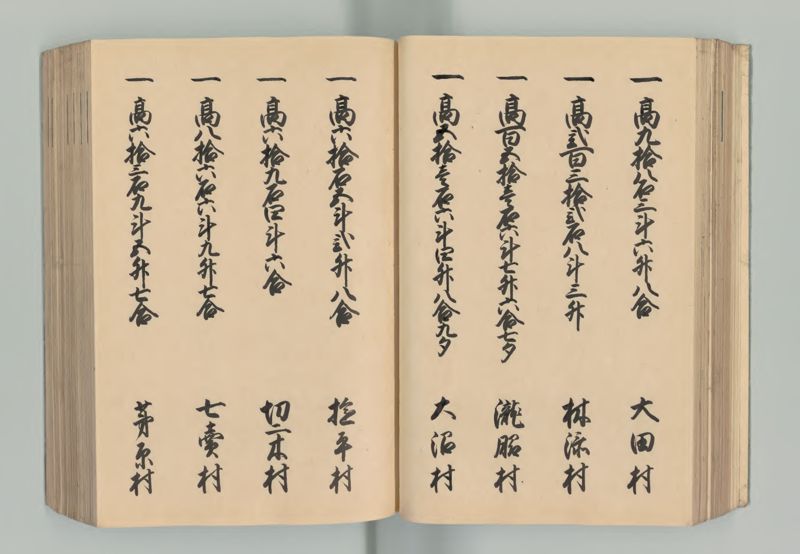 一 高九拾八石三斗六升八合 大田村
一 高弐百三拾弐石八斗三升 村
一 高百五拾壱石六斗七升六合七夕 瀧村
一 高五拾壱石六斗四升八合九夕 大沼村
一 高六拾石五斗弐升八合 平村
一 高六拾九石四斗六合 切二木村
一 高八拾六石六斗九升七合 七賣村
一 高六拾三石九斗五升七合 茅原村